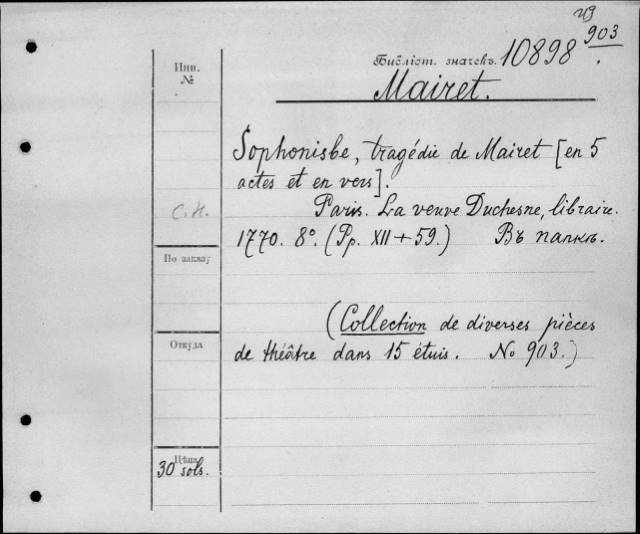 903
Библіот. значекъ. 10898
Инв.
№
Mairet.
Sophonisbe, tragédie de Mairet [en 5
actes et en vers].
С. Н.
Paris. La veuve Duchesne, libraire.
1770. 8°. (Pp. XII + 59.) Въ папкѣ.
По заказу
(Collection de diverses pièces
Откуда
de théâtre dans 15 étuis. No 903.)
Цѣна
30 sols.